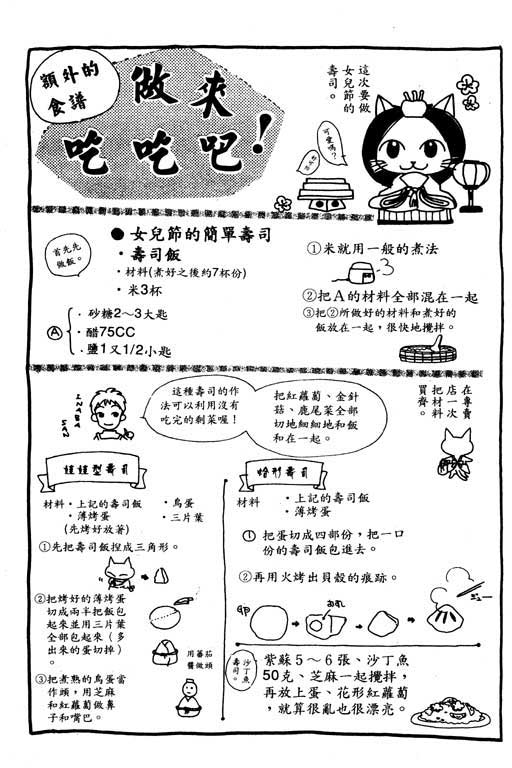 額外的
食譜
做來
吃吃吧!
這次要做
女兒節的
壽司。
可愛嗎?
首先先
做飯。
● 女兒節的簡單壽司
・壽司飯
・材料(煮好之後約7杯份)
・米3杯
Ⓐ
・砂糖2～3大匙
・醋75CC
・鹽1又1/2小匙
①米就用一般的煮法
②把A的材料全部混在一起
③把②所做好的材料和煮好的
飯放在一起，很快地攪拌。
INABA
SAN
這種壽司的作
法可以利用沒有
吃完的剩菜喔！
把紅蘿蔔、金針
菇、鹿尾菜全部
切地細細地和飯
和在一起。
在專賣
店一次
把材料
買齊。
娃娃型壽司
材料・上記的壽司飯
・薄烤蛋
(先烤好放著)
・鳥蛋
・三片葉
①先把壽司飯捏成三角形。
②把烤好的薄烤蛋
切成兩半把飯包
起來並用三片葉
全部包起來（多
出來的蛋切掉）
。
用蕃茄
醬做頭
③把煮熟的鳥蛋當
作頭，用芝麻
和紅蘿蔔做鼻
子和嘴巴。
蛤形壽司
材料
・上記的壽司飯
・薄烤蛋
① 把蛋切成四部份，把一口
份的壽司飯包進去。
②再用火烤出貝殼的痕跡。
沙丁魚
壽司。
紫蘇5～6張、沙丁魚
50克、芝麻一起攪拌，
再放上蛋、花形紅蘿蔔
，就算很亂也很漂亮。